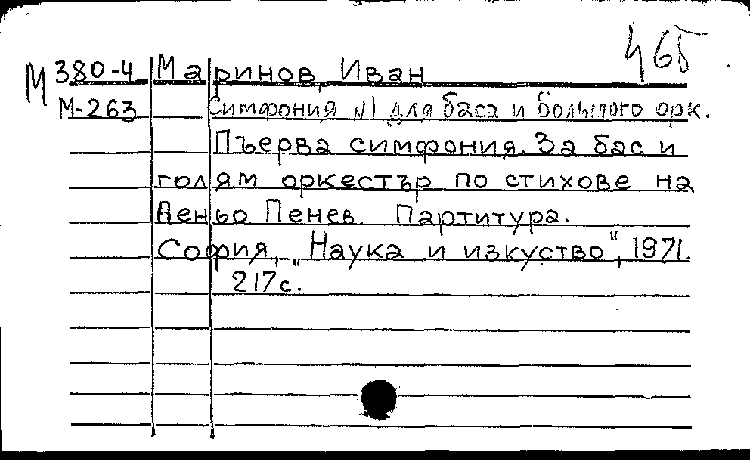 465
М 380-4 Маринов, Иван
М-263 Симфония №1 для баса и большого орк.
Пъерва симфония. За бас и
голям оркестър по стихове на
Деньо Пенев. Партитура.
София, „Наука и изкуство", 1971.
217с.